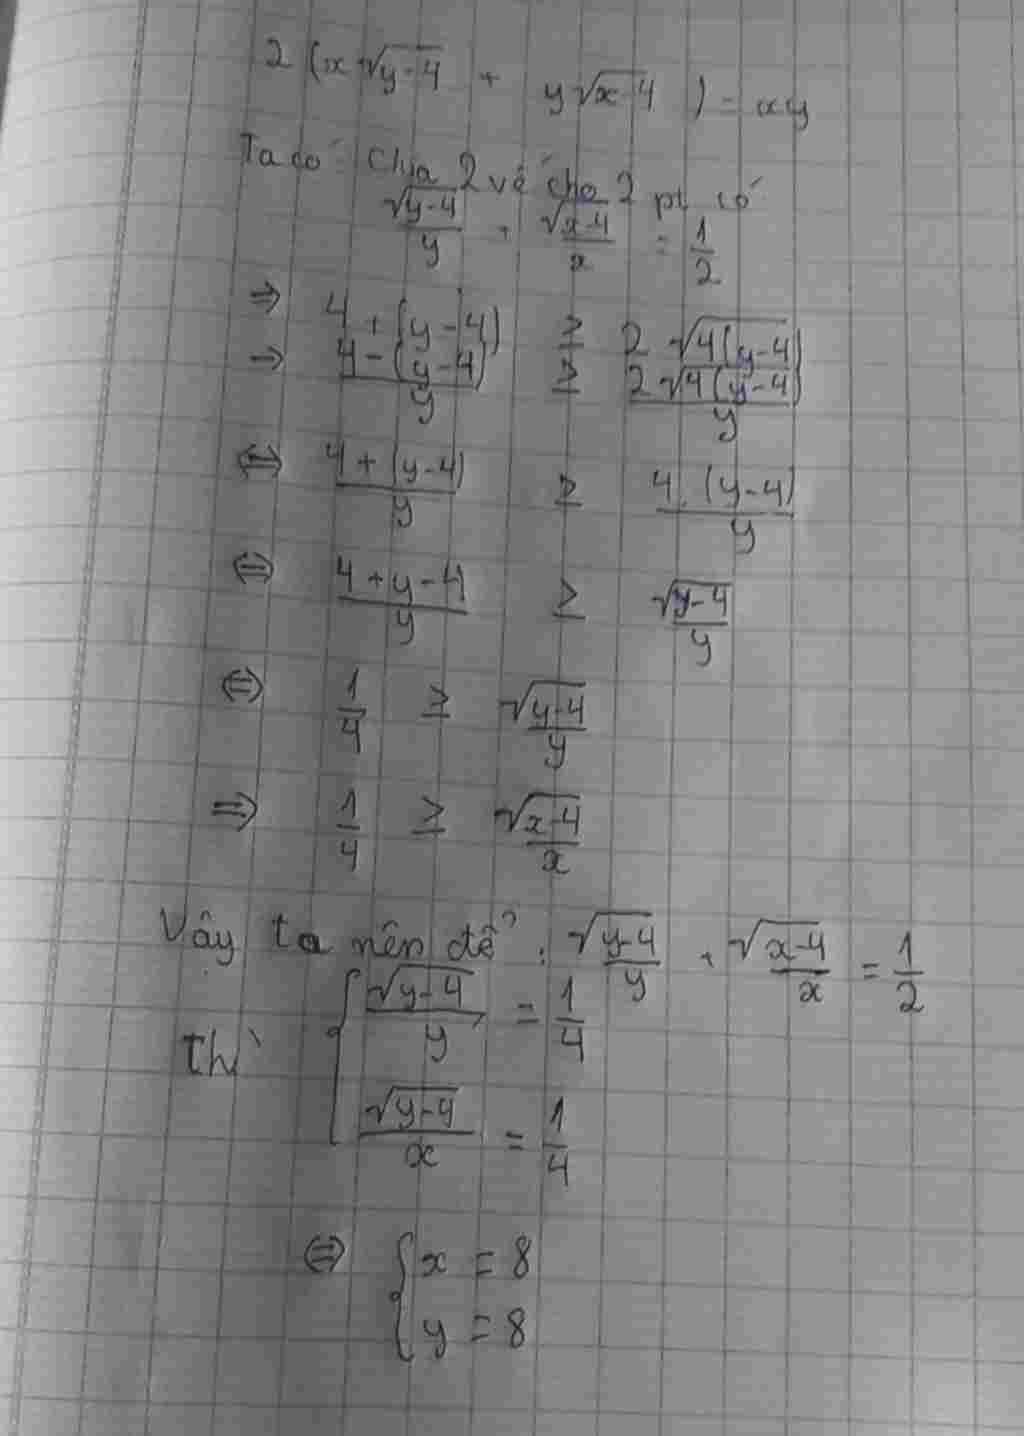 2 (x√(y-4) + y√(x-4)) = xy
Ta có: Chia 2 vế cho 2 pt có
√(y-4)/y + √(x-4)/x = 1/2
⇒ 4 + (y-4) ≥ 2√(4(y-4))
→ (4-(y-4))/y ≥ 2√(4(y-4))/y
⇔ (4+(y-4))/y ≥ 4.(y-4)/y
⇔ (4+y-4)/y ≥ √(y-4)/y
⇔ 1/4 ≥ √(y-4)/y
⇒ 1/4 ≥ √(x-4)/x
Vây ta nên để : √(y-4)/y + √(x-4)/x = 1/2
thì { √(y-4)/y = 1/4
√(y-4)/x = 1/4
⇔ { x = 8
y = 8